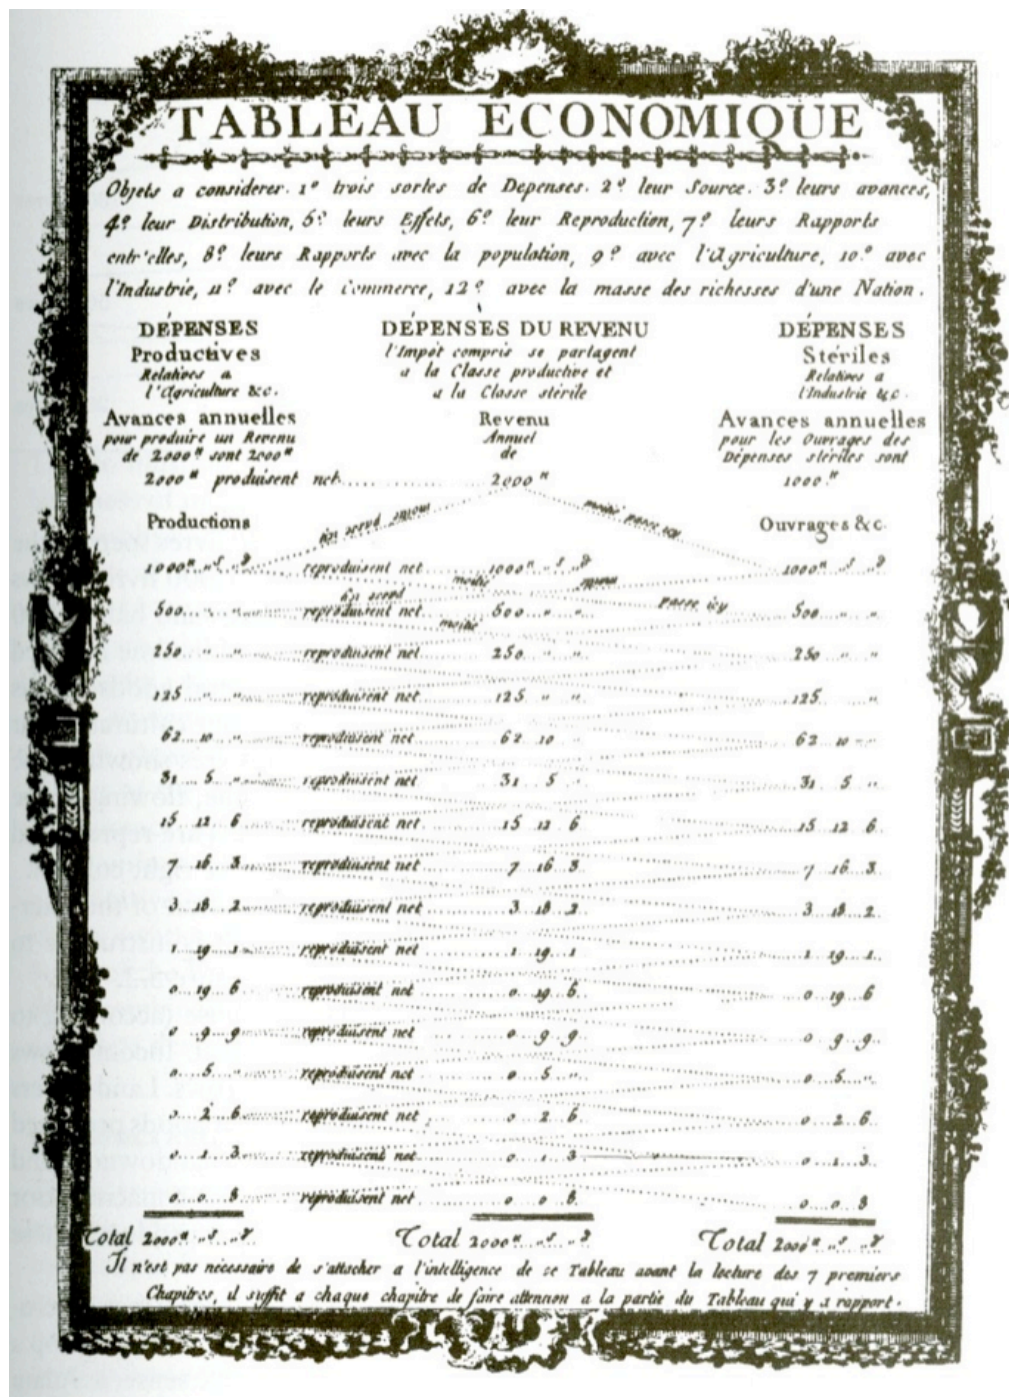 TABLEAU ECONOMIQUE
Objets a considerer. 1º trois sortes de Depenses. 2º leur Source. 3º leurs avances,
4º leur Distribution, 5º leurs Effets, 6º leur Reproduction, 7º leurs Rapports
entr'elles, 8º leurs Rapports avec la population, 9º avec l'Agriculture, 10º avec
l'Industrie, 11º avec le Commerce, 12º avec la masse des richesses d'une Nation.
DÉPENSES
Productives
Relatives a
l'Agriculture &c.
DÉPENSES DU REVENU
l'Impôt compris se partagent
a la Classe productive et
a la Classe stérile
DÉPENSES
Stériles
Relatives a
l'Industrie &c.
Avances annuelles
pour produire un Revenu
de 2000ᵗᵗ sont 2000ᵗᵗ
2000ᵗᵗ produisent net
Revenu
Annuel
de
2000ᵗᵗ
Avances annuelles
pour les Ouvrages des
Dépenses stériles sont
1000ᵗᵗ
Productions
moitié passe icy
Ouvrages &c.
1000ᵗᵗ „ s „ d reproduisent net 1000ᵗᵗ „ s „ d 1000ᵗᵗ „ s „ d
moitié
passe icy
500 „ „ reproduisent net 500 „ „ 500 „ „
moitié
250 „ „ reproduisent net 250 „ „ 250 „ „
125 „ „ reproduisent net 125 „ „ 125 „
62 10 „ reproduisent net 62 10 „ 62 10 „
31 5 „ reproduisent net 31 5 „ 31 5 „
15 12 6 reproduisent net 15 12 6 15 12 6
7 16 3 reproduisent net 7 16 3 7 16 3
3 18 2 reproduisent net 3 18 2 3 18 2
1 19 1 reproduisent net 1 19 1 1 19 1
0 19 6 reproduisent net 0 19 6 0 19 6
0 9 9 reproduisent net 0 9 9 0 9 9
0 5 „ reproduisent net 0 5 „ 0 5 „
0 2 6 reproduisent net 0 2 6 0 2 6
0 1 3 reproduisent net 0 1 3 0 1 3
0 0 8 reproduisent net 0 0 8 0 0 8
Total 2000ᵗᵗ „ s „ d Total 2000ᵗᵗ „ s „ d Total 2000ᵗᵗ „ s „ d
Il n'est pas nécessaire de s'attacher a l'intelligence de ce Tableau avant la lecture des 7 premiers
Chapitres, il suffit a chaque chapitre de faire attention a la partie du Tableau qui y a rapport.